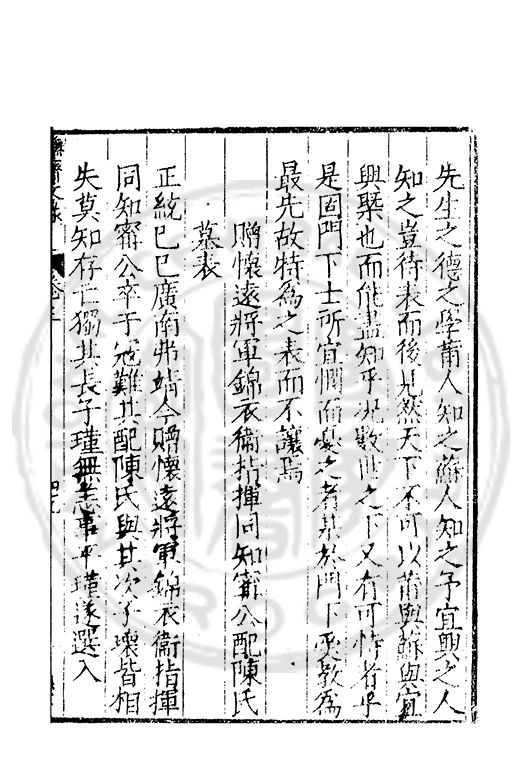 先生之德之學莆人知之蘇人知之予宜興之人
知之豈待表而後見然天下不可以莆與蘇與宜
興槩也而能盡知乎況數世之下又有可恃者乎
是固門下士所宜惻而憂之者某於門下受教為
最先故特為之表而不讓焉
贈懷遠將軍錦衣衞指揮同知甯公配陳氏
墓表
正統己巳廣南弗靖今贈懷遠將軍錦衣衞指揮
同知甯公卒于冦難其配陳氏與其次子壞皆相
失莫知存亡獨其長子瑾無恙事平瑾遂選入